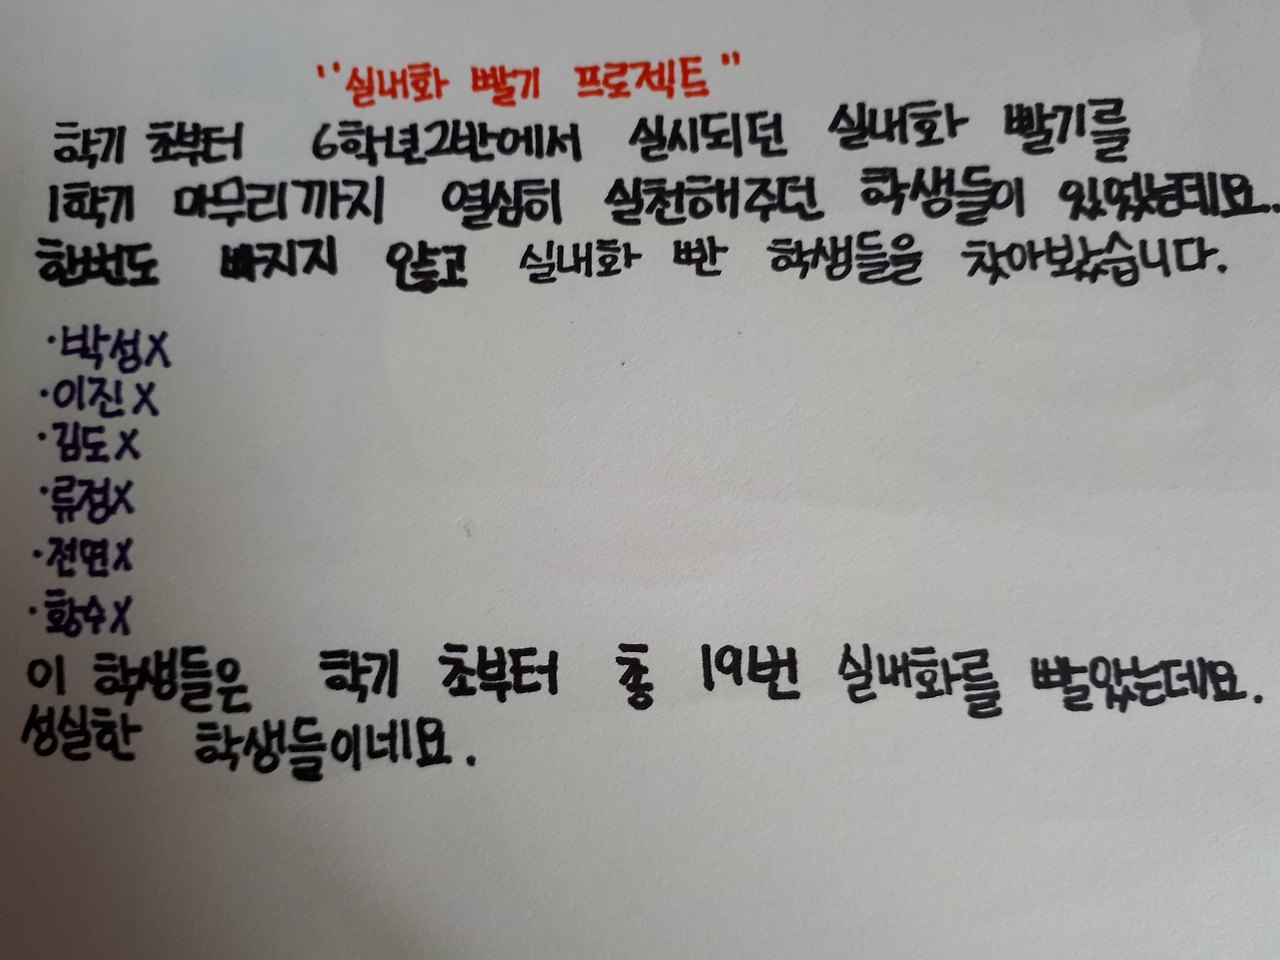 "실내화 빨기 프로젝트"
학기 초부터 6학년2반에서 실시되던 실내화 빨기를
1학기 마무리까지 열심히 실천해주던 학생들이 있었는데요..
한번도 빠지지 않고 실내화 빤 학생들을 찾아봤습니다.
·박성X
·이진X
·김도X
·류정X
·전연X
·황수X
이 학생들은 학기 초부터 총 19번 실내화를 빨았는데요.
성실한 학생들이네요.